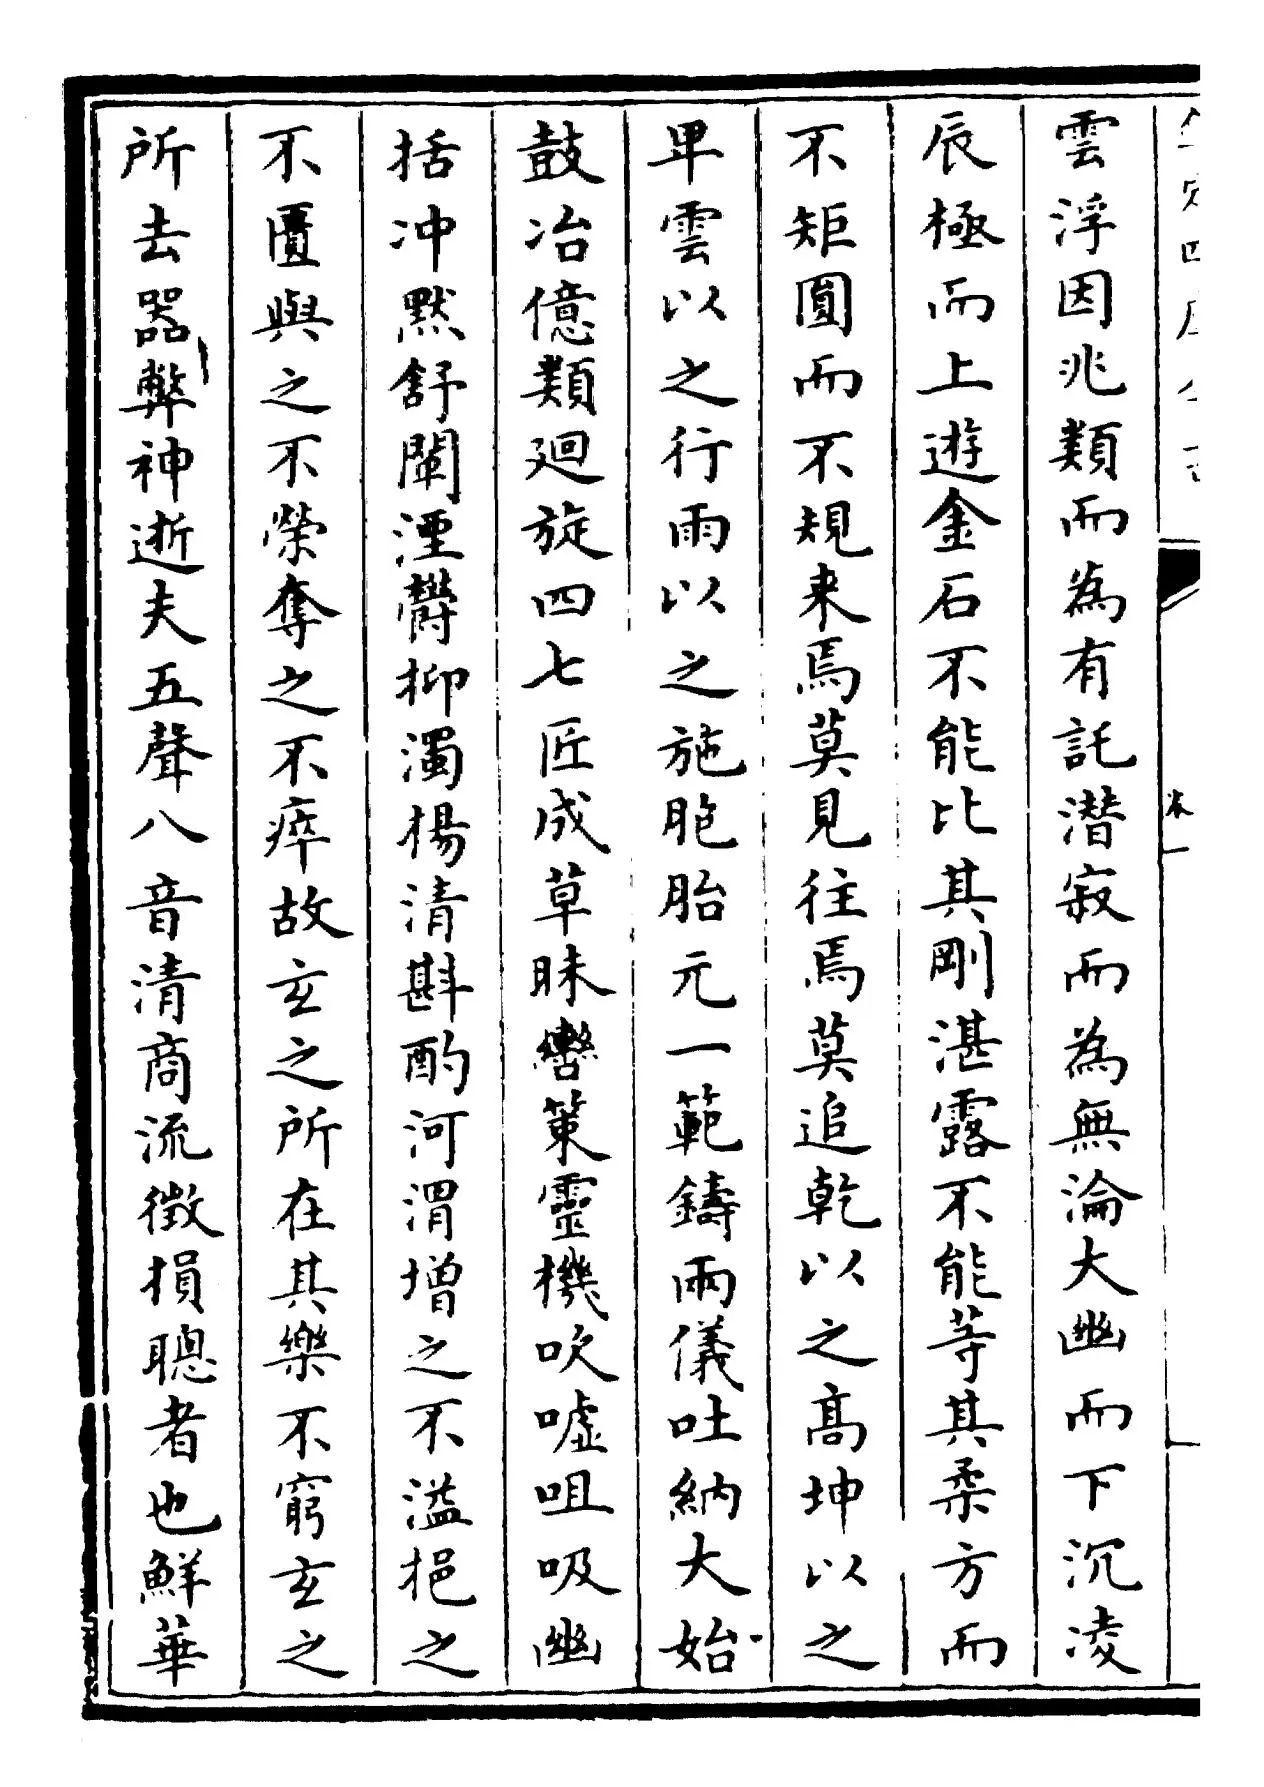 雲浮因兆類而為有託潛寂而為無淪大幽而下沉凌
辰極而上遊金石不能比其剛湛露不能等其柔方而
不矩圓而不規来焉莫見往焉莫追乾以之高坤以之
卑雲以之行雨以之施胞胎元一範鑄兩儀吐納大始
鼓冶億類廻旋四七匠成草昧轡策靈機吹噓咀吸幽
括冲黙舒闡湮欝抑濁楊清斟酌河渭増之不溢挹之
不匱與之不榮奪之不瘁故玄之所在其樂不窮玄之
所去器弊神逝夫五聲八音清商流徴損聰者也鮮華